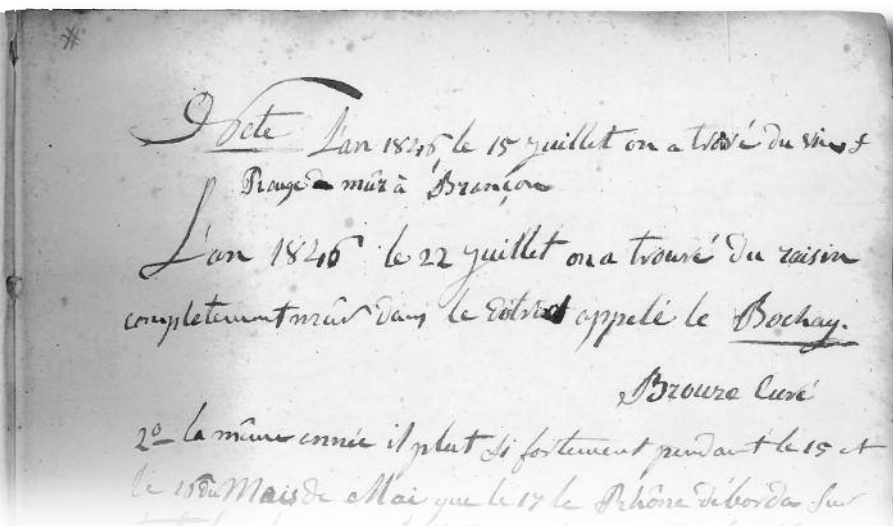 Note L'an 1846 le 15 juillet on a trouvé du vin
Rouge mûr à Brançon
L'an 1846 le 22 juillet on a trouvé du raisin
completement mûr dans le district appelé le Bochay.
Curé
2º la même année il plut si fortement pendant le 15 et
le 16 du Mois de Mai que le 17 le Rhône déborda sur